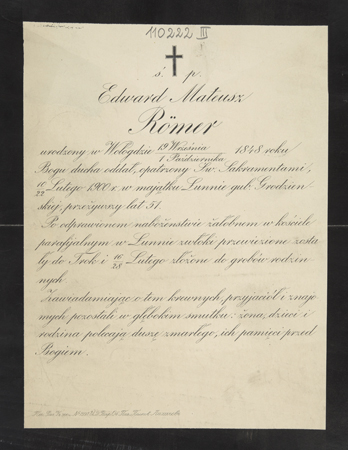 110222 III
ś. p.
Edward Mateusz
Römer
urodzony w Wologdzie 19 Września / 1 Października 1848 roku
Bogu ducha oddał, opatrzony Św. Sakramentami,
10/22 Lutego 1900 r. w majątku Łunnie gub. Grodzień
skiej, przeżywszy lat 51.
Po odprawionem nabożeństwie żałobnem w kościele
parafijalnym w Łunnie zwłoki przewiezione zosta
ły do Trok i 16/28 Lutego złożone do grobów rodzin
nych.
Zawiadamiając o tem krewnych, przyjaciół i znajo
mych pozostali w głębokim smutku: żona, dzieci i
rodzina polecają duszę zmarłego, ich pamięci przed
Bogiem.